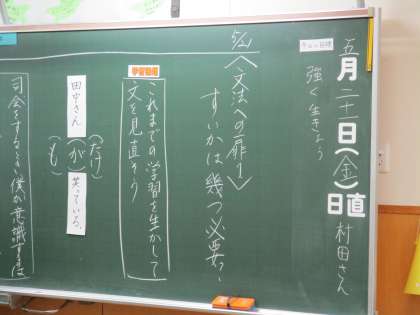 五月二十一日(金)日直 村田さん
今日の目標
強く生きよう
5/21
〈文法への扉1〉
すいかは幾つ必要?
学習課題
これまでの学習を生かして
文を見直そう
田中さん
(だけ)
(が)
(も)
笑っている。
司会をするとき僕が意識するのは